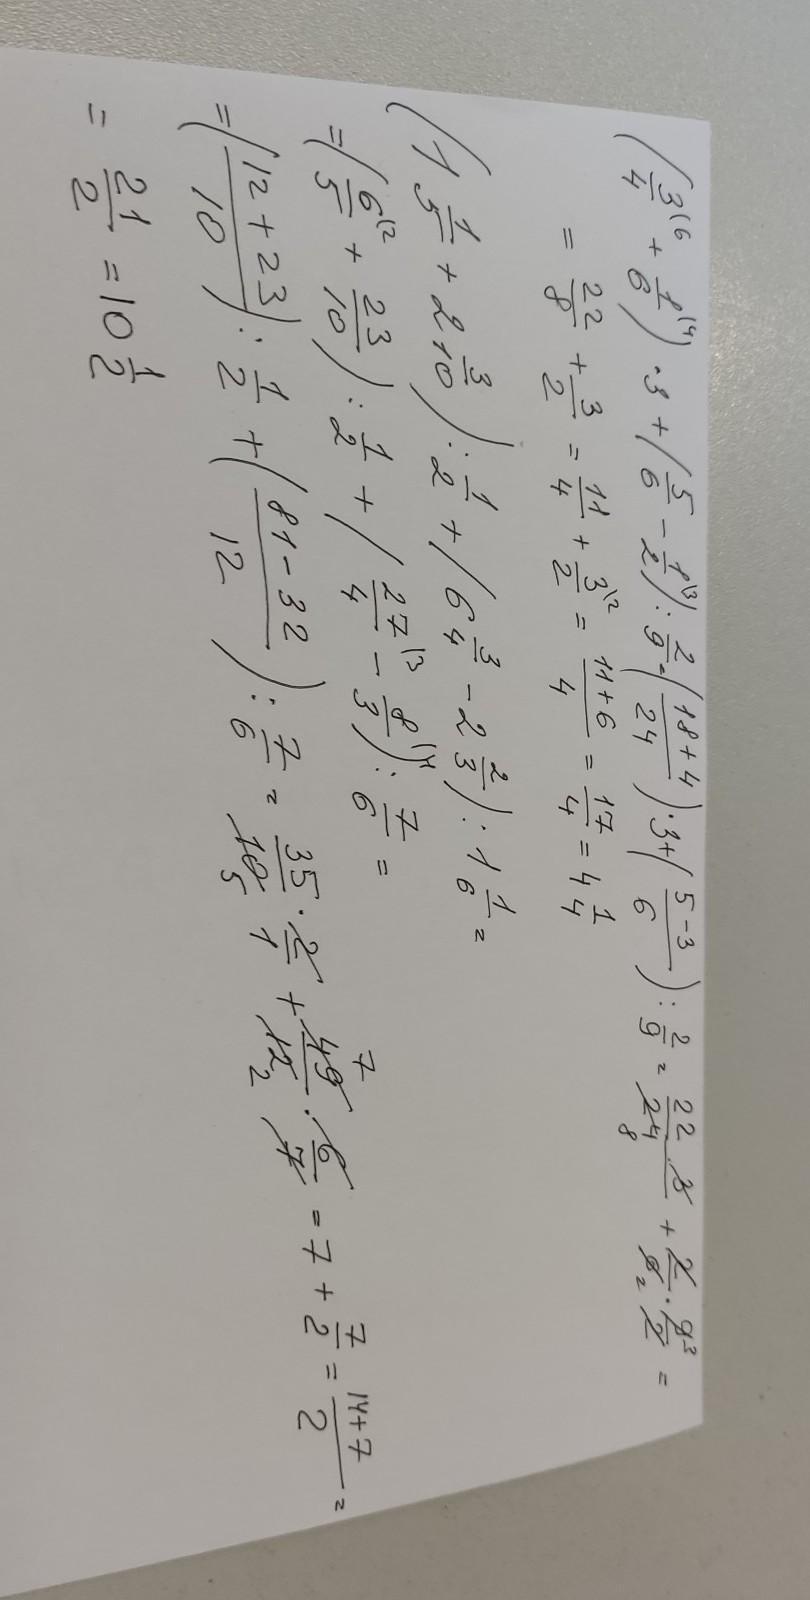 (3/4\6 + 1/6\4) · 3 + (5/6 - 1/2\3) : 2/9 = (18+4/24) · 3 + (5-3/6) : 2/9 = 22/24 8 · 3 + 2/6 2 · 9 3/2 =
= 22/8 + 3/2 = 11/4 + 3/2\2 = 11+6/4 = 17/4 = 4 1/4
(1 1/5 + 2 3/10) : 1/2 + (6 3/4 - 2 2/3) : 1 1/6 =
= (6/5\2 + 23/10) : 1/2 + (27/4\3 - 8/3\4) : 7/6 =
= (12+23/10) : 1/2 + (81-32/12) : 7/6 = 35/10 5 · 2/1 + 49 7/12 2 · 6/7 = 7 + 7/2 = 14+7/2 =
= 21/2 = 10 1/2